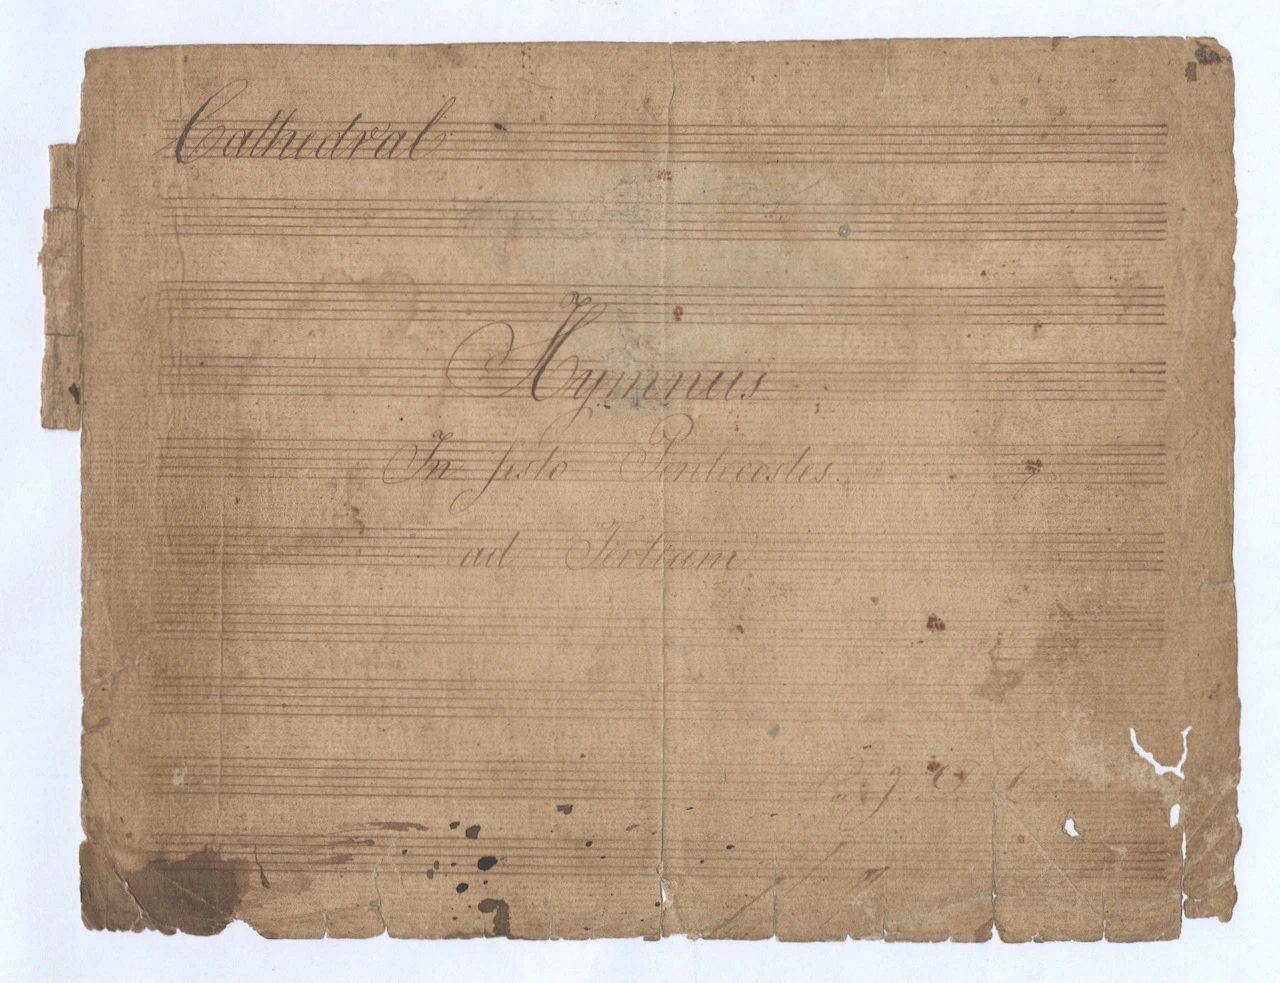 Cathedral
Hymnus
In festo Pentecostes.
ad Tertiam